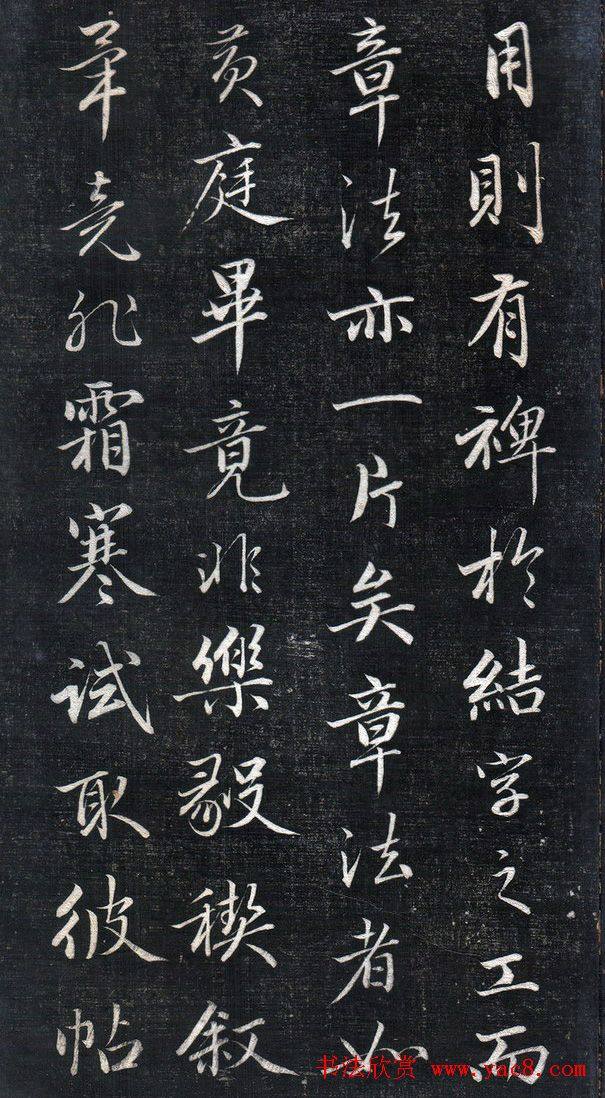 用則有裨於結字之工而
章法亦一片矣章法者如
黃庭畢竟非樂毅禊敘
畢竟非霜寒試取彼帖
书法欣赏 www.yac8.com